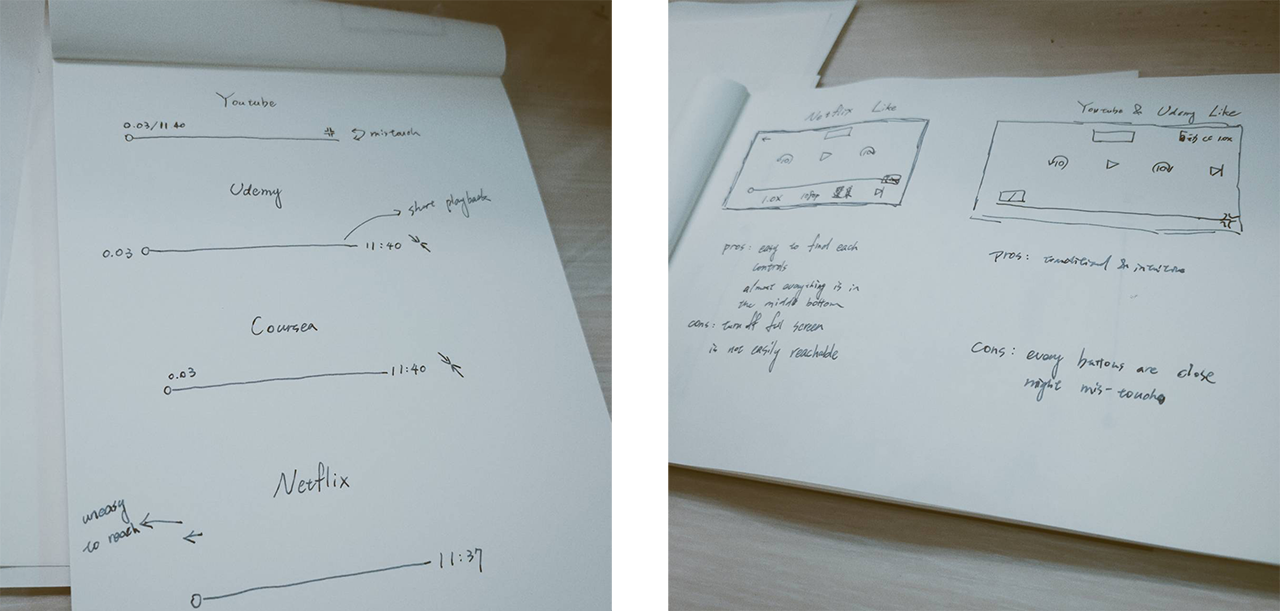 Youtube
0.03/11.40
mistouch
Udemy
share playback
0.03
11:40
Coursea
0.03
11:40
Netflix
uneasy
to reach
11:37
Netflix Like
10
10
1.0X
pros: easy to find each
controls
almost everything is in
the middle bottom
cons: turn off full screen
is not easily reachable
Youtube & Udemy Like
CC 1.0X
10
10
pros: & intuitive
cons: every buttons are close
might mis-touch